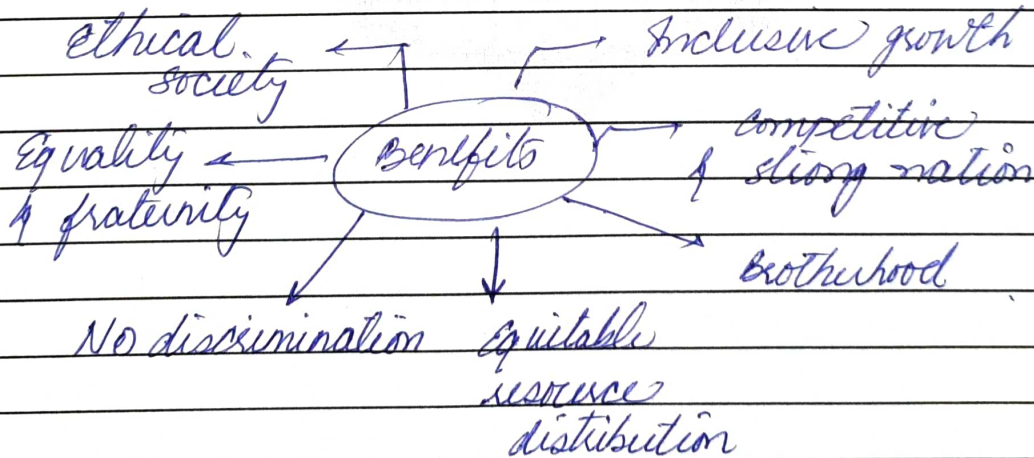 Ethical
society
Inclusive growth
Equality
& fraternity
Benefits
competitive
& strong nation
Brotherhood
No discrimination
Equitable
resource
distribution